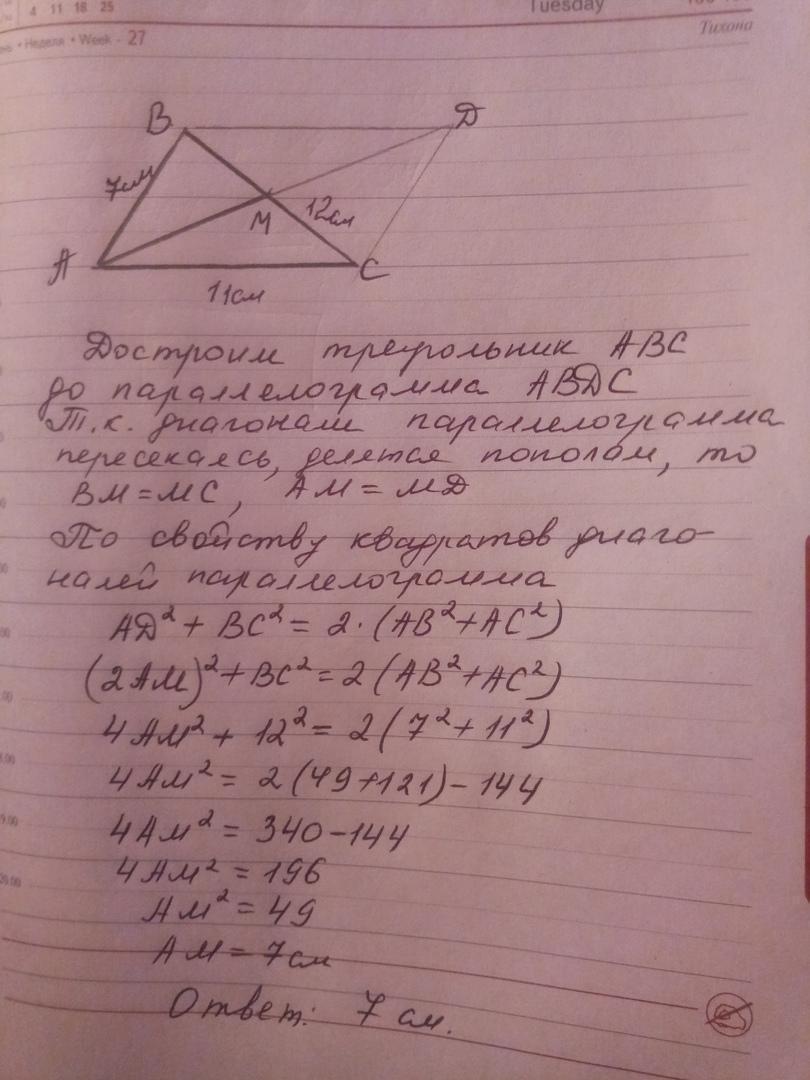 4 11 18 25
Tuesday
• Неделя • Week - 27
Тихона
B
D
7см
M
12см
A
C
11см
Достроим треугольник ABC
до параллелограмма ABDC
Т.к. диагонали параллелограмма
пересекаясь, делятся пополам, то
BM = MC, AM = MD
По свойству квадратов диаго-
налей параллелограмма
AD² + BC² = 2·(AB²+AC²)
(2AM)²+BC²=2(AB²+AC²)
4AM² + 12² = 2(7²+11²)
4AM² = 2(49+121)-144
4AM² = 340-144
4AM² = 196
AM² = 49
AM = 7см
Ответ: 7 см.